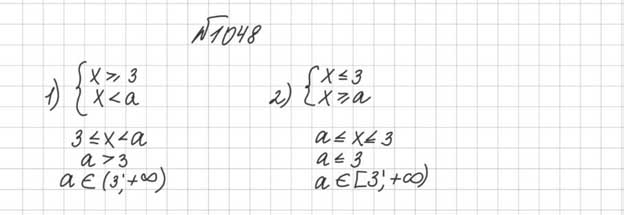 №1048
1) { x ≥ 3
x < a
3 ≤ x < a
a > 3
a ∈ (3; +∞)
2) { x ≤ 3
x ≥ a
a ≤ x ≤ 3
a ≤ 3
a ∈ [3; +∞)